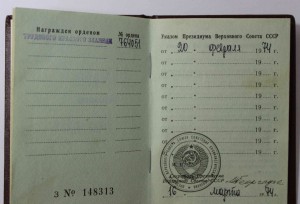 Награжден орденом
№ ордена
Трудового Красного Знамени
764051
З № 148313
Указом Президиума Верховного Совета СССР
от 20 февраля 1974 г.
от " " 19 г.
от " " 19 г.
от " " 19 г.
от " " 19 г.
от " " 19 г.
от " " 19 г.
от " " 19 г.
Секретарь Президиума
Верховного Совета СССР
16 марта 1974 г.